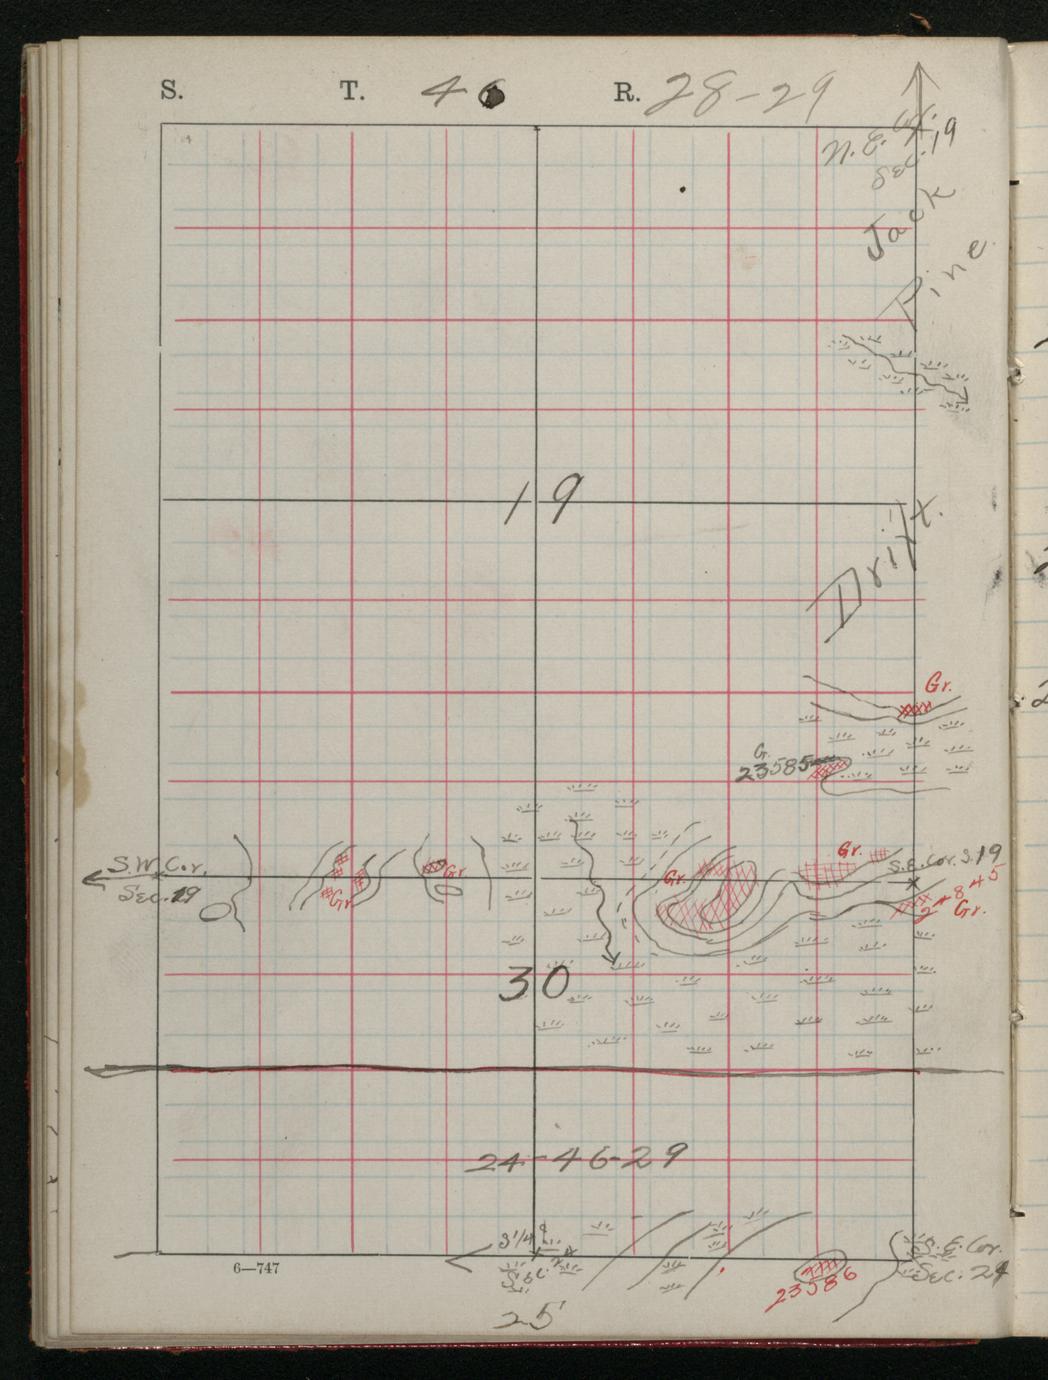 S. T. 46 R. 28-29
N. E. Cor.
Sec. 19
Jack
Pine
19
Drift.
Gr.
G.
23585
Gr.
S.W. Cor.
Sec. 19
Gr.
Gr.
Gr.
S.E. Cor. S. 19
24845
Gr.
30
24-46-29
S 1/4
Sec. 24
S. E. Cor.
Sec. 24
23586
6—747
25